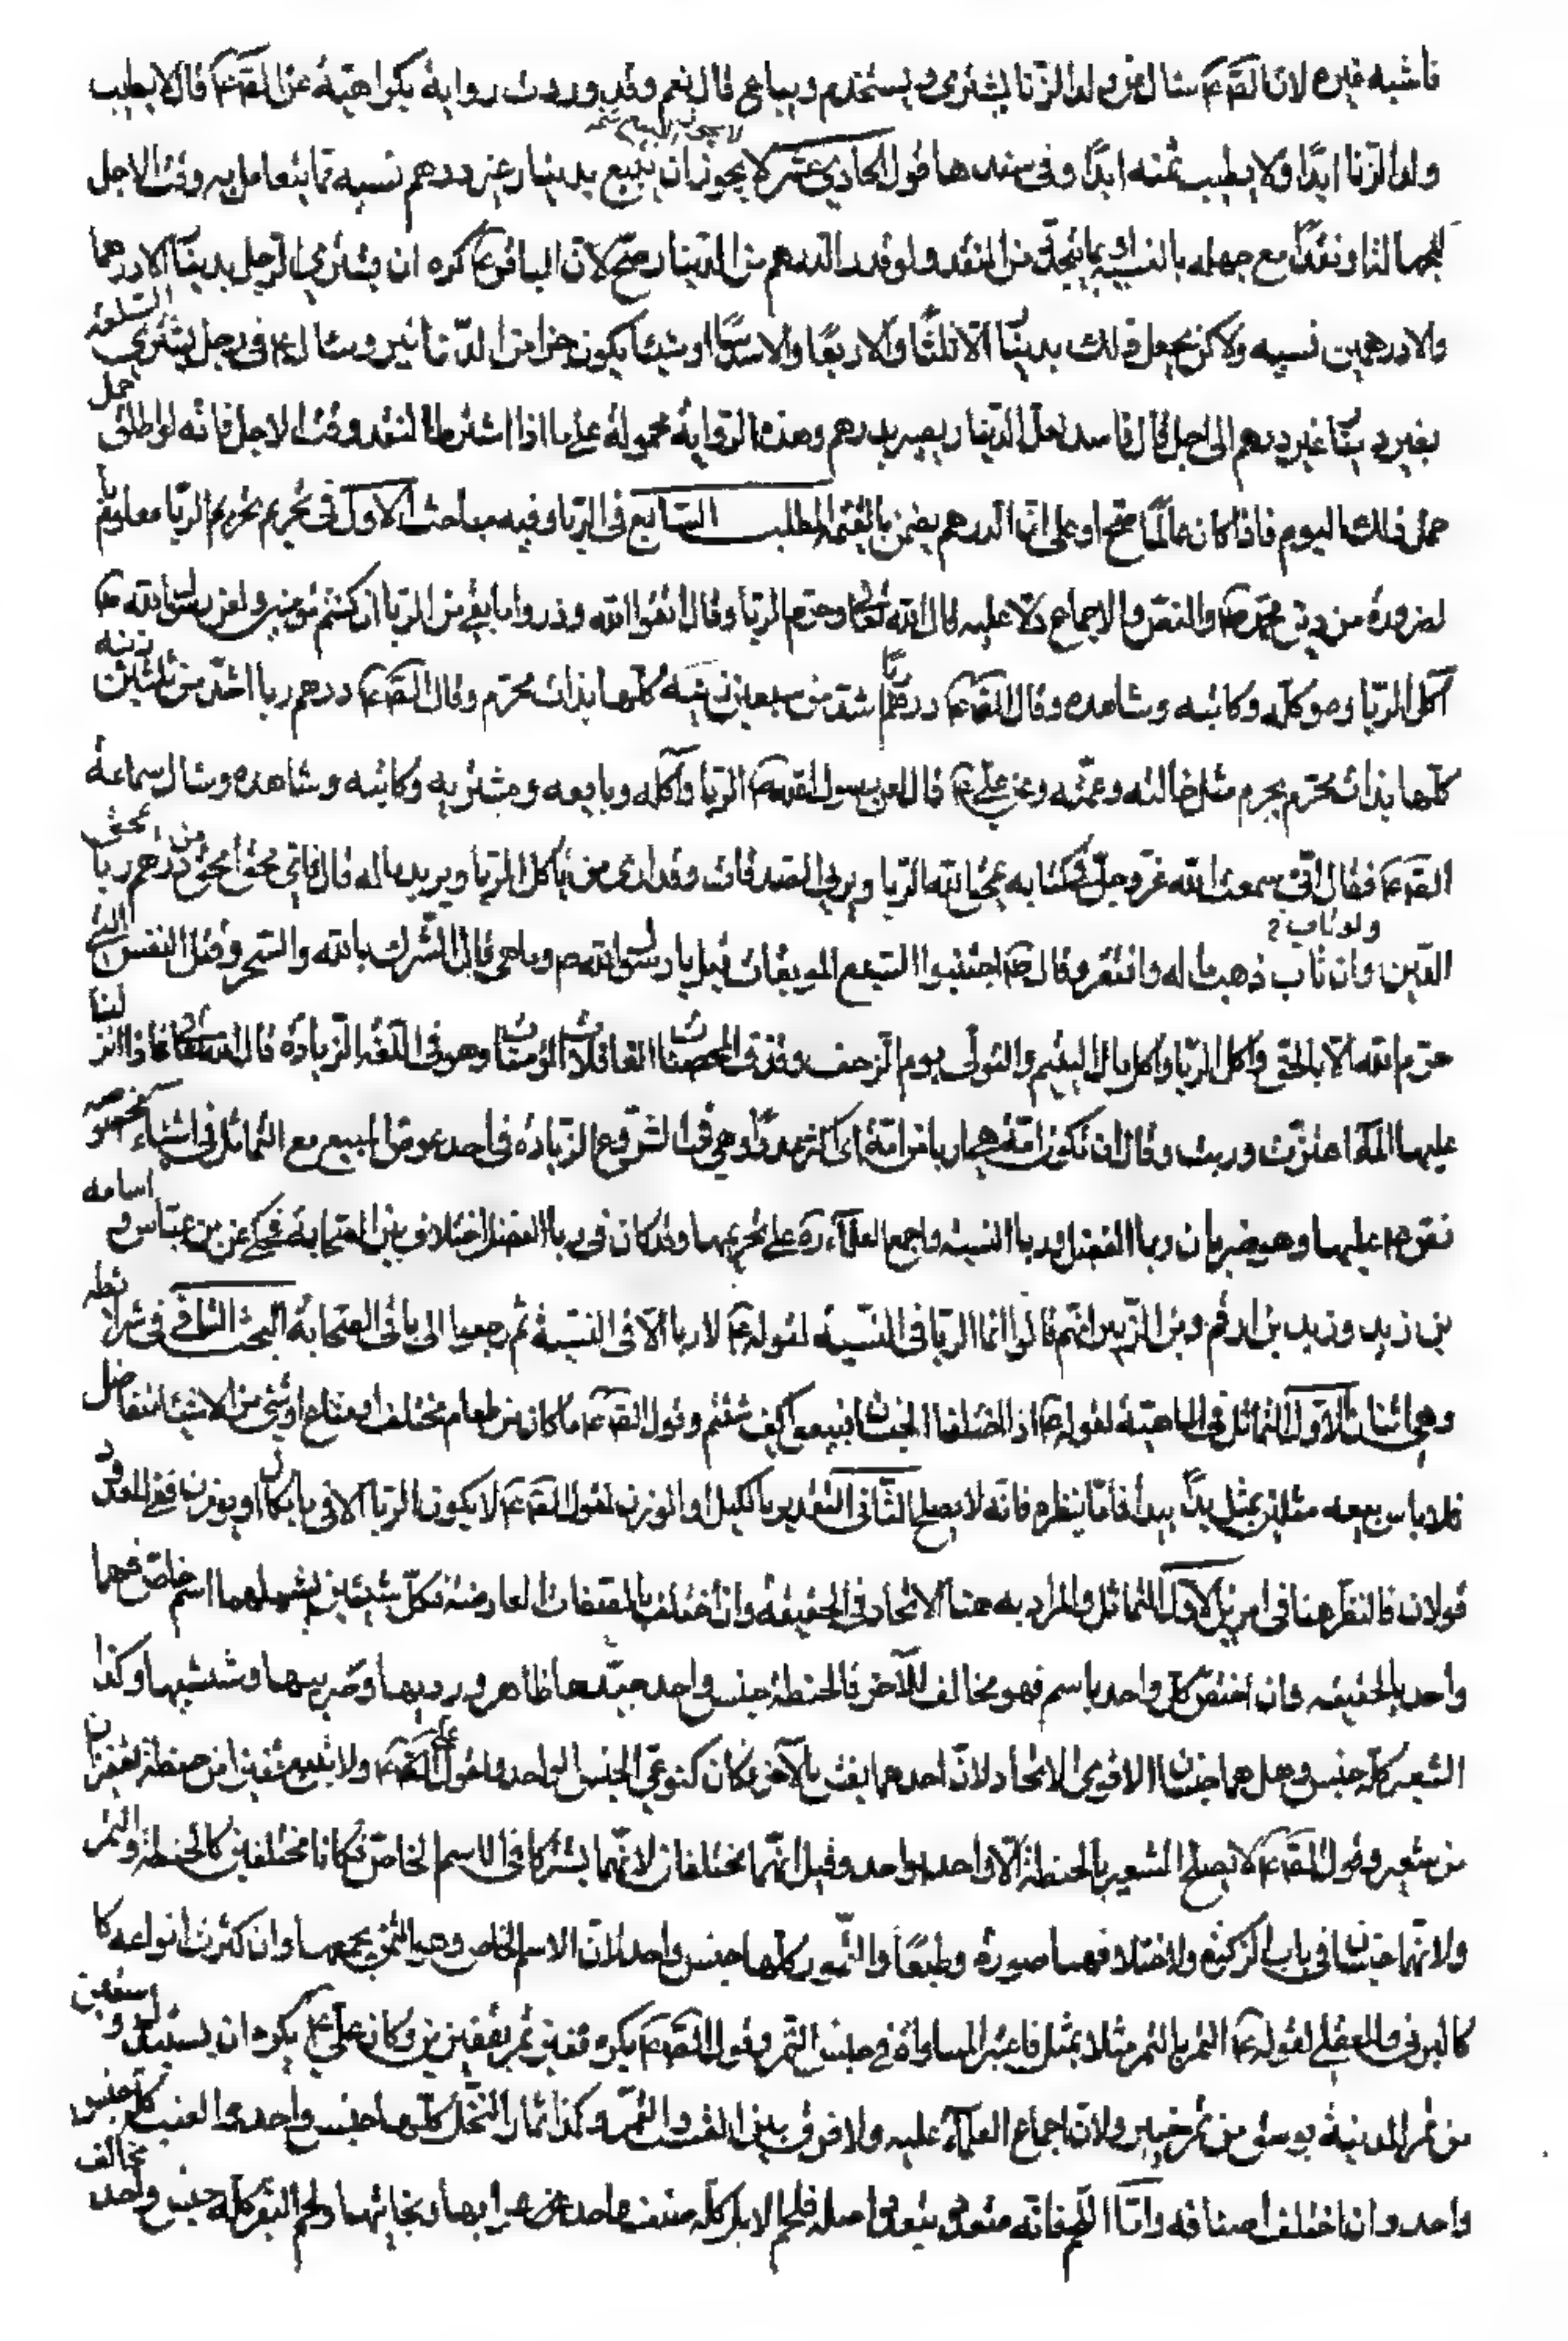 فاشبه غيره لان الصّ ع سئل عن ولد الزنا يشترى ويستخدم ويباع قال نعم وقد وردت رواية بكراهيته عن الصّ ع قال لا يطيب
ولد الزنا ابدًا ولا يطيب ثمنه ابدًا وفى سندها قول الحادي عشر لا يجوز ان يبيع بدينار غير درهم نسيه مما يتعامل به وقت الاجل
لجهالتها ونقدًا مع جهله بالنسبه مما يتجدّد من النقد ولو قدر الدرهم من الدينار صح لان الباقر ع كره ان يشترى الرجل بدينار الا درهما
والا درهمين نسيه ولكن يجعل ذلك بدينار الا ثلثًا والا ربعًا والا سدسًا او شيئا يكون جزا من الدنانير وسئل ع فى رجل يشترى السلعه
بغير دينار غير درهم الى اجل قال فاسد لعل الدينار يصير بدرهم وهذه الرواية محمولة على ما اذا اشترط النقد وقت الاجل فانه لو اطلق حمل
على ذلك اليوم فاذا كان عالمًا صح او على ان الدرهم يضمن بالقيمة المطلب السابع فى الربا وفيه مباحث الاول فى تحريمه تحريم الربا معلوم
لضرورة من دين محمد ص والنص والاجماع دلا عليه قال الله تعالى وحرم الربا وقال اتقوا الله وذروا ما بقي من الربا ان كنتم مؤمنين ولعن رسول الله ص
آكل الربا وموكله وكاتبه وشاهده وقال الصّ ع درهم ربا اشد من سبعين زنية كلها بذات محرم وقال الصّ ع درهم ربا اشد من ثلثين زنيه
كلها بذات محرم مثل خالته وعمته وعن علي ع قال لعن رسول الله ص الربا وآكله وبايعه ومشتريه وكاتبه وشاهده وسئل سماعة
الصّ ع فقال انى سمعت الله عز وجل فى كتابه يمحق الله الربا ويربى الصدقات وقد ارى من ياكل الربا ويربو ماله قال فاى محق امحق من درهم ربا يمحق
الدين وان تاب ذهب ماله وافتقر وقال ص اجتنبوا السبع الموبقات قيل يا رسول الله ص وما هى قال الشرك بالله والسحر وقتل النفس التى
حرم الله الا بالحق واكل الربا واكل مال اليتيم والتولى يوم الزحف وقذف المحصنات الغافلات المؤمنات وهو فى اللغة الزيادة قال الله تعالى فاذا انزلنا
عليها الماء اهتزت وربت وقال ان تكون امة هى اربا من امة اى اكثر عددًا وهى فى الشرع الزيادة فى احد عوضى المبيع مع التماثل فى اشياء مخصوصه
نقوم عليها وهى ضربان ربا الفضل وربا النسيه واجمع العلماء ره على تحريمها وقد كان فى ربا الفضل اختلاف بين الصحابة فحكى عن ابن عباس و اسامه
بن زيد وزيد بن ارقم وبن الزبير انهم قالوا انما الربا فى النسيه لقوله ع لا ربا الا فى النسية ثم رجعوا الى باقى الصحابة البحث الثانى فى شرائطه
وهى اثنان الاول التماثل فى الماهية لقوله ع اذا اختلف الجنسان فبيعوا كيف شئتم وقول الصّ ع ما كان من طعام مختلف او متاع او شئ من الاشياء متفاضل
فلا باس ببيعه مثلين بمثل يدًا بيد فاما نظرة فانه لا يصلح الثانى التقدير بالكيل او الوزن لقول الصّ ع لا يكون الربا الا فى ما يكال او يوزن ففى المعدود
قولان فالنظر هنا فى امرين الاول التماثل والمراد به هنا الاتحاد فى الحقيقة وان اختلف بالصفات العارضة فكل شيئين يشملهما اسم خاص فهما
واحد بالحقيقه وان اختص كل واحد باسم فهو مخالف للآخر فالحنطة جنس واحد جيدها ظاهر ورديها وضريبيها وشتيتها وكذا
الشعير كله جنس وهل هما جنسان الاقوى الاتحاد لان احدهما يغش بالآخر فكان كنوعى الجنس الواحد ولقول الصّ ع ولا يبيع قفيزا من حنطة بقفيزين
من شعير وقول الصّ ع لا يصلح الشعير بالحنطة الا واحد بواحد وقيل انهما مختلفان لانهما لم يشتركا فى الاسم الخاص فكانا مختلفين كالحنطة والتمر
ولانهما جنسان فى باب الزكوة ولاختلافهما صورة وطبعًا والتمور كلها جنس واحد لان الاسم الخاص وهو التمر يجمعها وان كثرت انواعه كا
كالبرنى والمعقلى لقوله ع التمر بالتمر مثلا بمثل فاعتبر المساواة فى جنس التمر وقول الصّ ع يكره قفيز تمر بقفيزين وكان علي ع يكره ان يستبدل وسقين
من تمر المدينة بوسق من تمر خيبر ولان اجماع العلماء عليه ولا فرق بين القسب والتمر وكذا ثمار النخل كلها جنس واحد والعنب كله جنس
واحد وان اختلف اصنافه واما اللحم فانه متعدد بتعدد اصله فلحم الابل كله صنف واحد عرابها وبخاتيها ولحم البقر كله جنس واحد مخالف